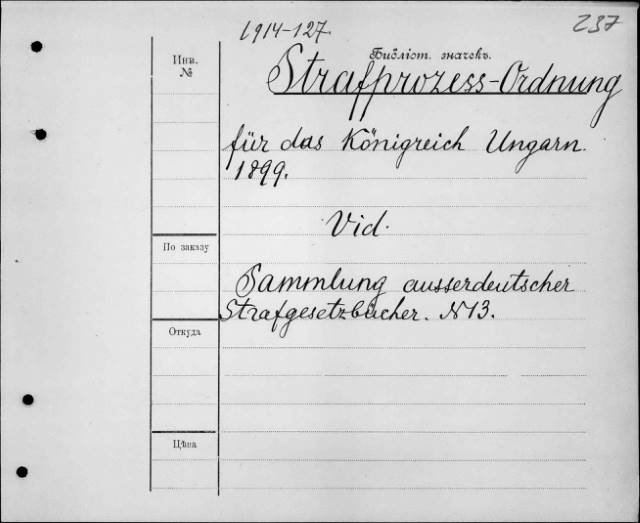 1914-127.
237
Инв.
№
Библіот. значекъ.
Strafprozess-Ordnung
für das Königreich Ungarn.
1899.
Vid.
По заказу
Sammlung ausserdeutscher
Strafgesetzbücher. N13.
Откуда
Цѣна